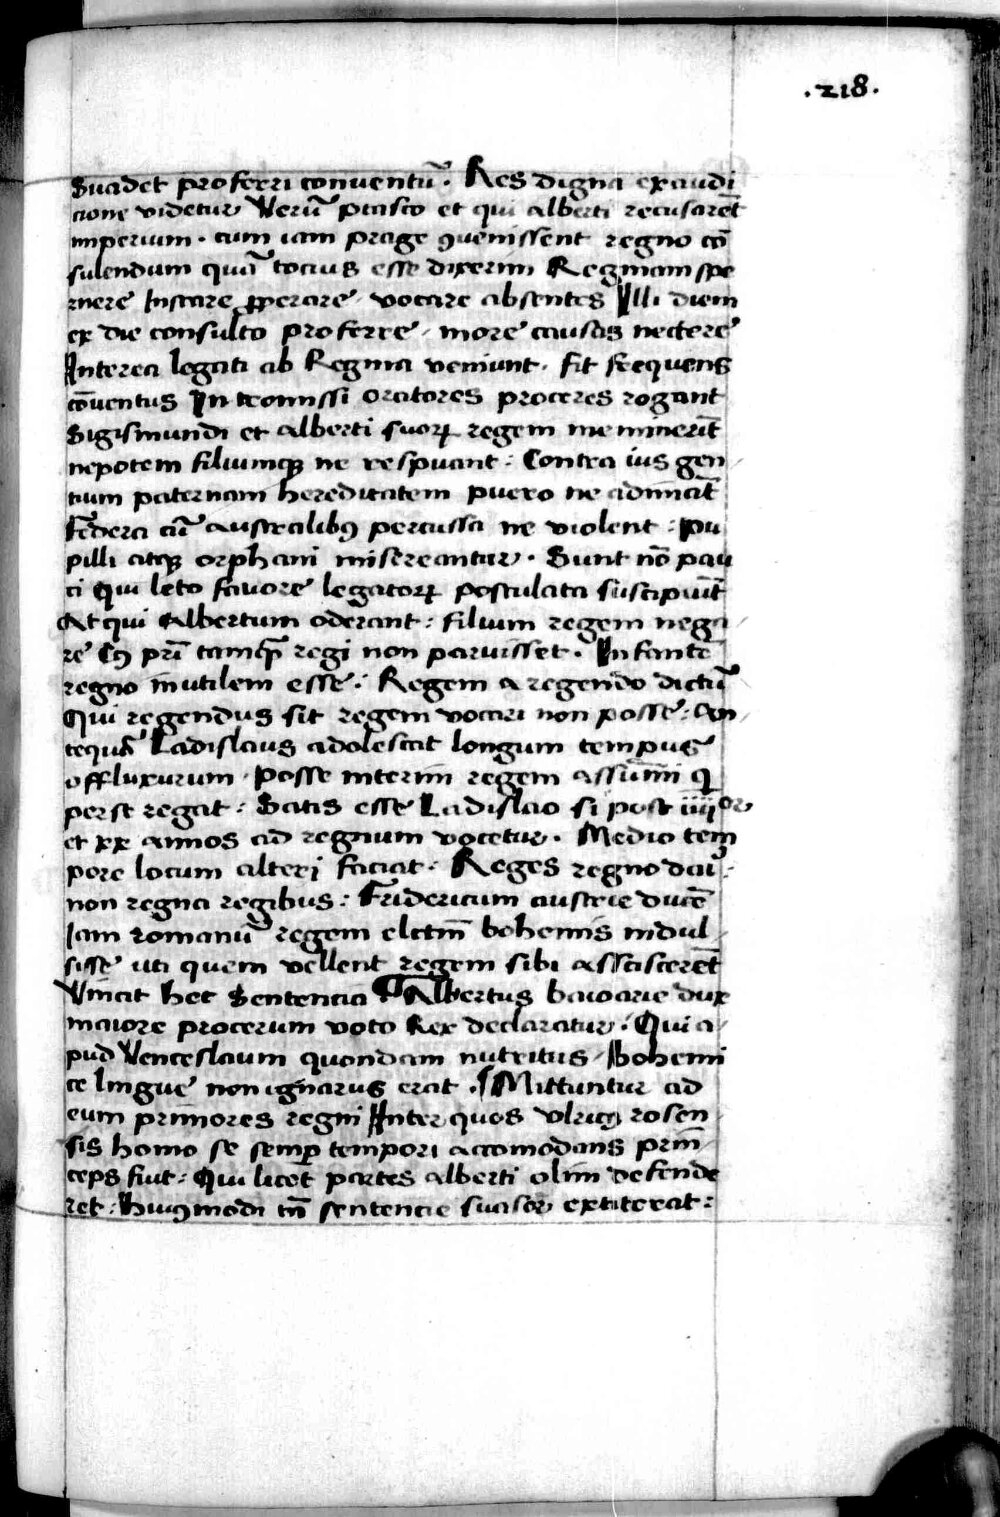 .218.
Suadet proferri conuentū. Res digna exaudi
cione videtur Verū ptasco et qui alberti recusarēt
imperium. cum iam prage ꝯuenissent regno cō
sulendum quā tocius esse dixerim Reginam spe
rnere Instare ꝓperare vocare absentes Illi diem
ex die consulto proferre, more causas nectere
Interea legati ab Regina veniunt. fit frequens
cōuentus Intromissi oratores proceres rogant
Sigismundi et alberti suoꝝ regem meminerīt
nepotem filiumqꝫ ne respuant: Contra ius gen
tium paternam hereditatem puero ne adimāt
Federa cū australibꝰ percussa ne violent: pu
pilli atqꝫ orphani misereantur. Sunt nō pau
ci qui leto fauore legatoꝝ postulata suscipiūt
At qui Albertum oderant: filium regem nega
re Cꝰ pr̄i tamqꝫ regi non paruisset. Infantē
regno inutilem esse: Regem a regendo dictū
Qui regendus sit regem vocari non posse: An
tequā Ladislaus adolescat longum tempus
effluxurum. posse interim regem assūmi qͥ
per se regat: Satis esse Ladislao si post iiijor
et xx annos ad regnum vocetur. Medio tem
pore locum alteri faciat. Reges regno dari:
non regna regibus: Fridericum austrie ducē
Iam romanū regem elctm̄ bohemis indul
sisse uti quem vellent regem sibi asscisterēt
Vincit hec Sentencia ¶ Albertus baioarie dux
maiore procerum voto Rex declaratur. Qui a
pud Venceslaum quondam nutritus, bohemi
ce lingue non ignarus erat. ¶ Mittuntur ad
eum primores regni Inter quos vlricꝰ rosen
sis homo se semꝑ tempori accomodans prin
ceps fuit: Qui licet partes alberti olim defende
ret: huiꝰmodi tn̄ sentencie suasor extiterat: